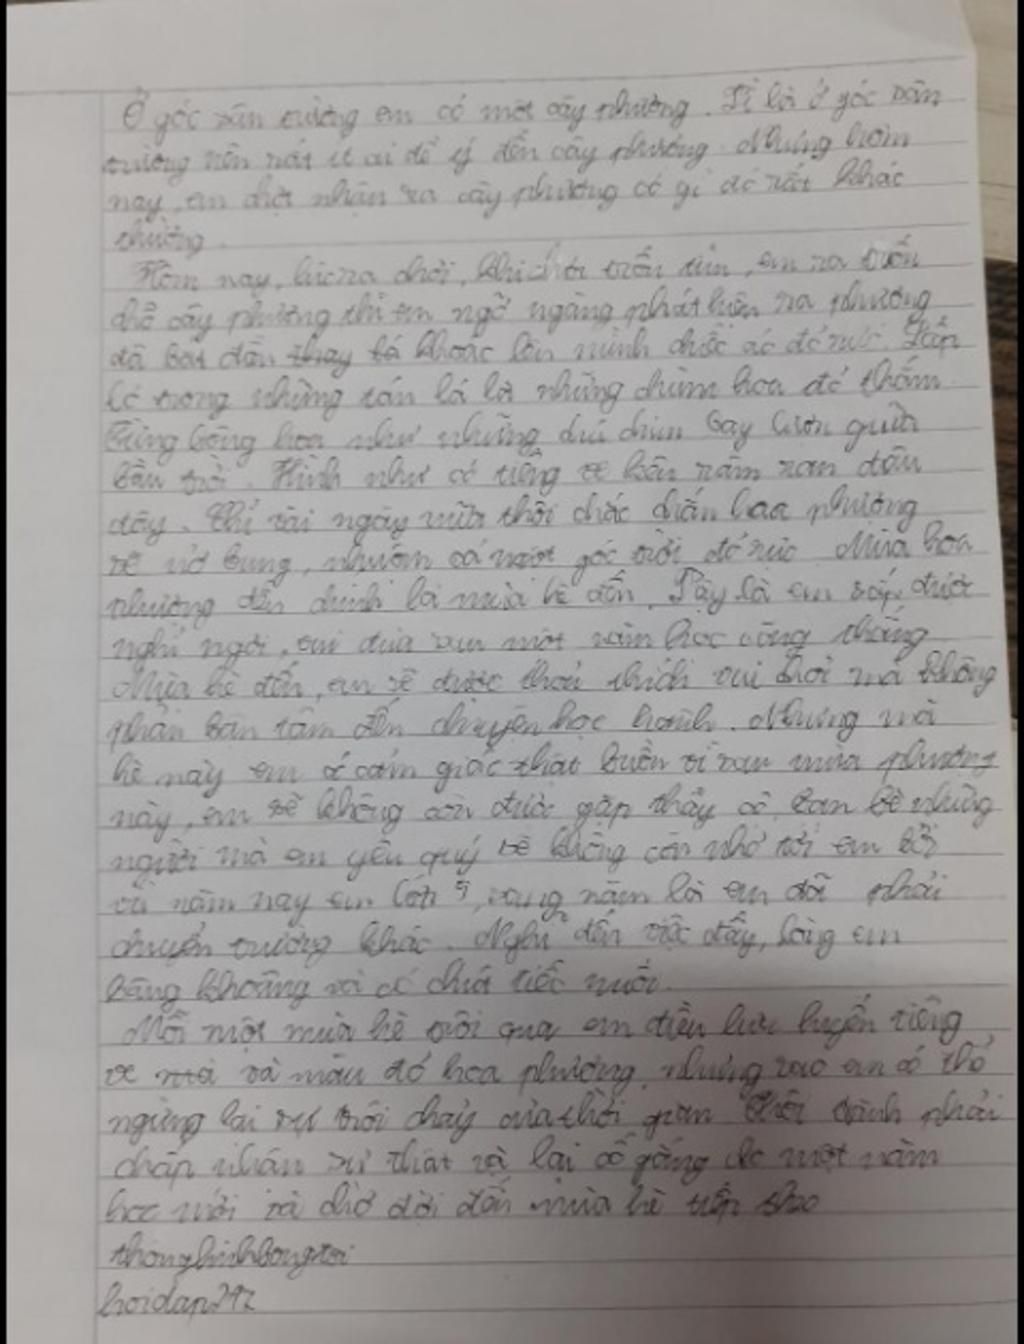 Ở góc sân trường em có một cây phượng. Vì là ở góc sân
trường nên rất ít ai để ý đến cây phượng. Nhưng hôm
nay, em chợt nhận ra cây phượng có gì đó rất khác
thường.
Hôm nay, lúc ra chơi, khi chơi trốn tìm, em ra trốn
chỗ cây phượng thì em ngỡ ngàng phát hiện ra phượng
đã bắt đầu thay lá khoác lên mình chiếc áo đỏ rực. Lấp
ló trong những tán lá là những chùm hoa đỏ thắm.
Từng bông hoa như những chú chim bay lượn giữa
bầu trời. Hình như có tiếng ve kêu râm ran đâu
đây. Chỉ vài ngày nữa thôi chắc chắn hoa phượng
sẽ nở bung, nhuộm cả một góc trời đỏ rực. Mùa hoa
phượng đến chính là mùa hè đến. Vậy là em sắp được
nghỉ ngơi, vui đùa sau một năm học căng thẳng
Mùa hè đến, em sẽ được thoả thích vui chơi mà không
phải bận tâm đến chuyện học hành. Nhưng mà
hè này em có cảm giác thật buồn vì sau mùa phượng
này, em sẽ không còn được gặp thầy cô, bạn bè những
người mà em yêu quý sẽ không còn nhớ tới em bởi
vì năm nay em lớp 5, sang năm là em đã phải
chuyển trường khác. Nghĩ đến việc đấy, lòng em
bâng khuâng và có chút tiếc nuối.
Mỗi một mùa hè trôi qua em đều lưu luyến tiếng
ve và màu đỏ hoa phượng, nhưng sao em có thể
ngừng lại sự trôi chảy của thời gian thôi đành phải
chấp nhận sự thật và lại cố gắng cho một năm
học mới và chờ đợi đến mùa hè tiếp theo
hoidap247